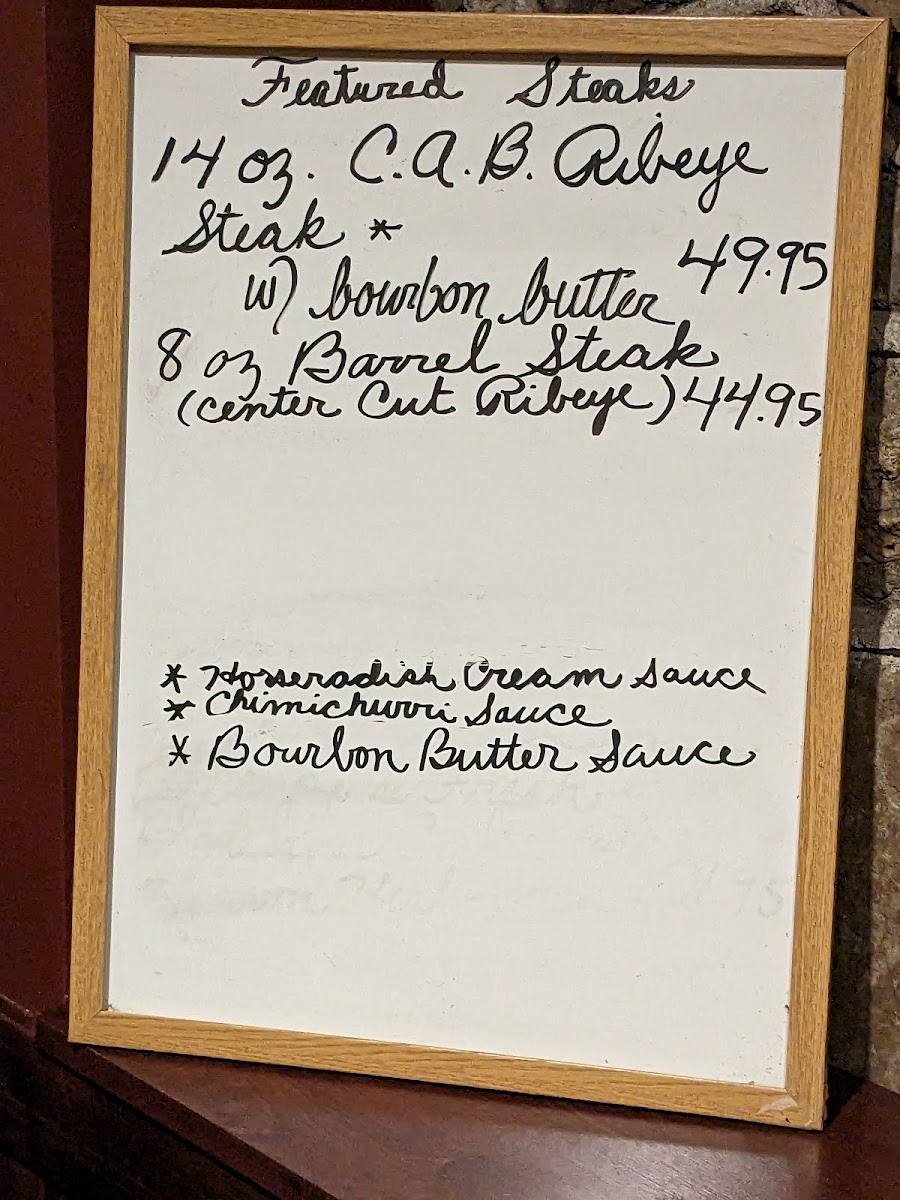 Featured Steaks
14 oz. C.A.B. Ribeye
Steak *
w/ bourbon butter 49.95
8 oz Barrel Steak
(center Cut Ribeye) 44.95
* Horseradish Cream Sauce
* Chimichurri Sauce
* Bourbon Butter Sauce